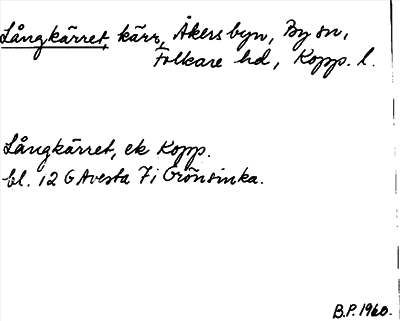 Långkärret, kärr, Åkersbyn, By sn,
Folkare hd, Kopp. l.
Långkärret, ek Kopp.
bl. 12 G Avesta 7i Grönsinka.
B.P. 1960.